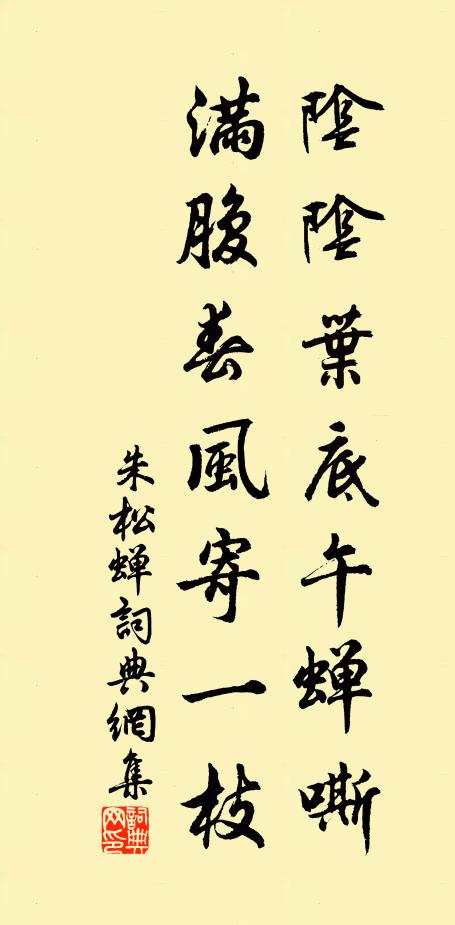 陰陰葉底午蝉嘶
滿腹春風寄一枝
朱松蝉詞典網集
詞典网印